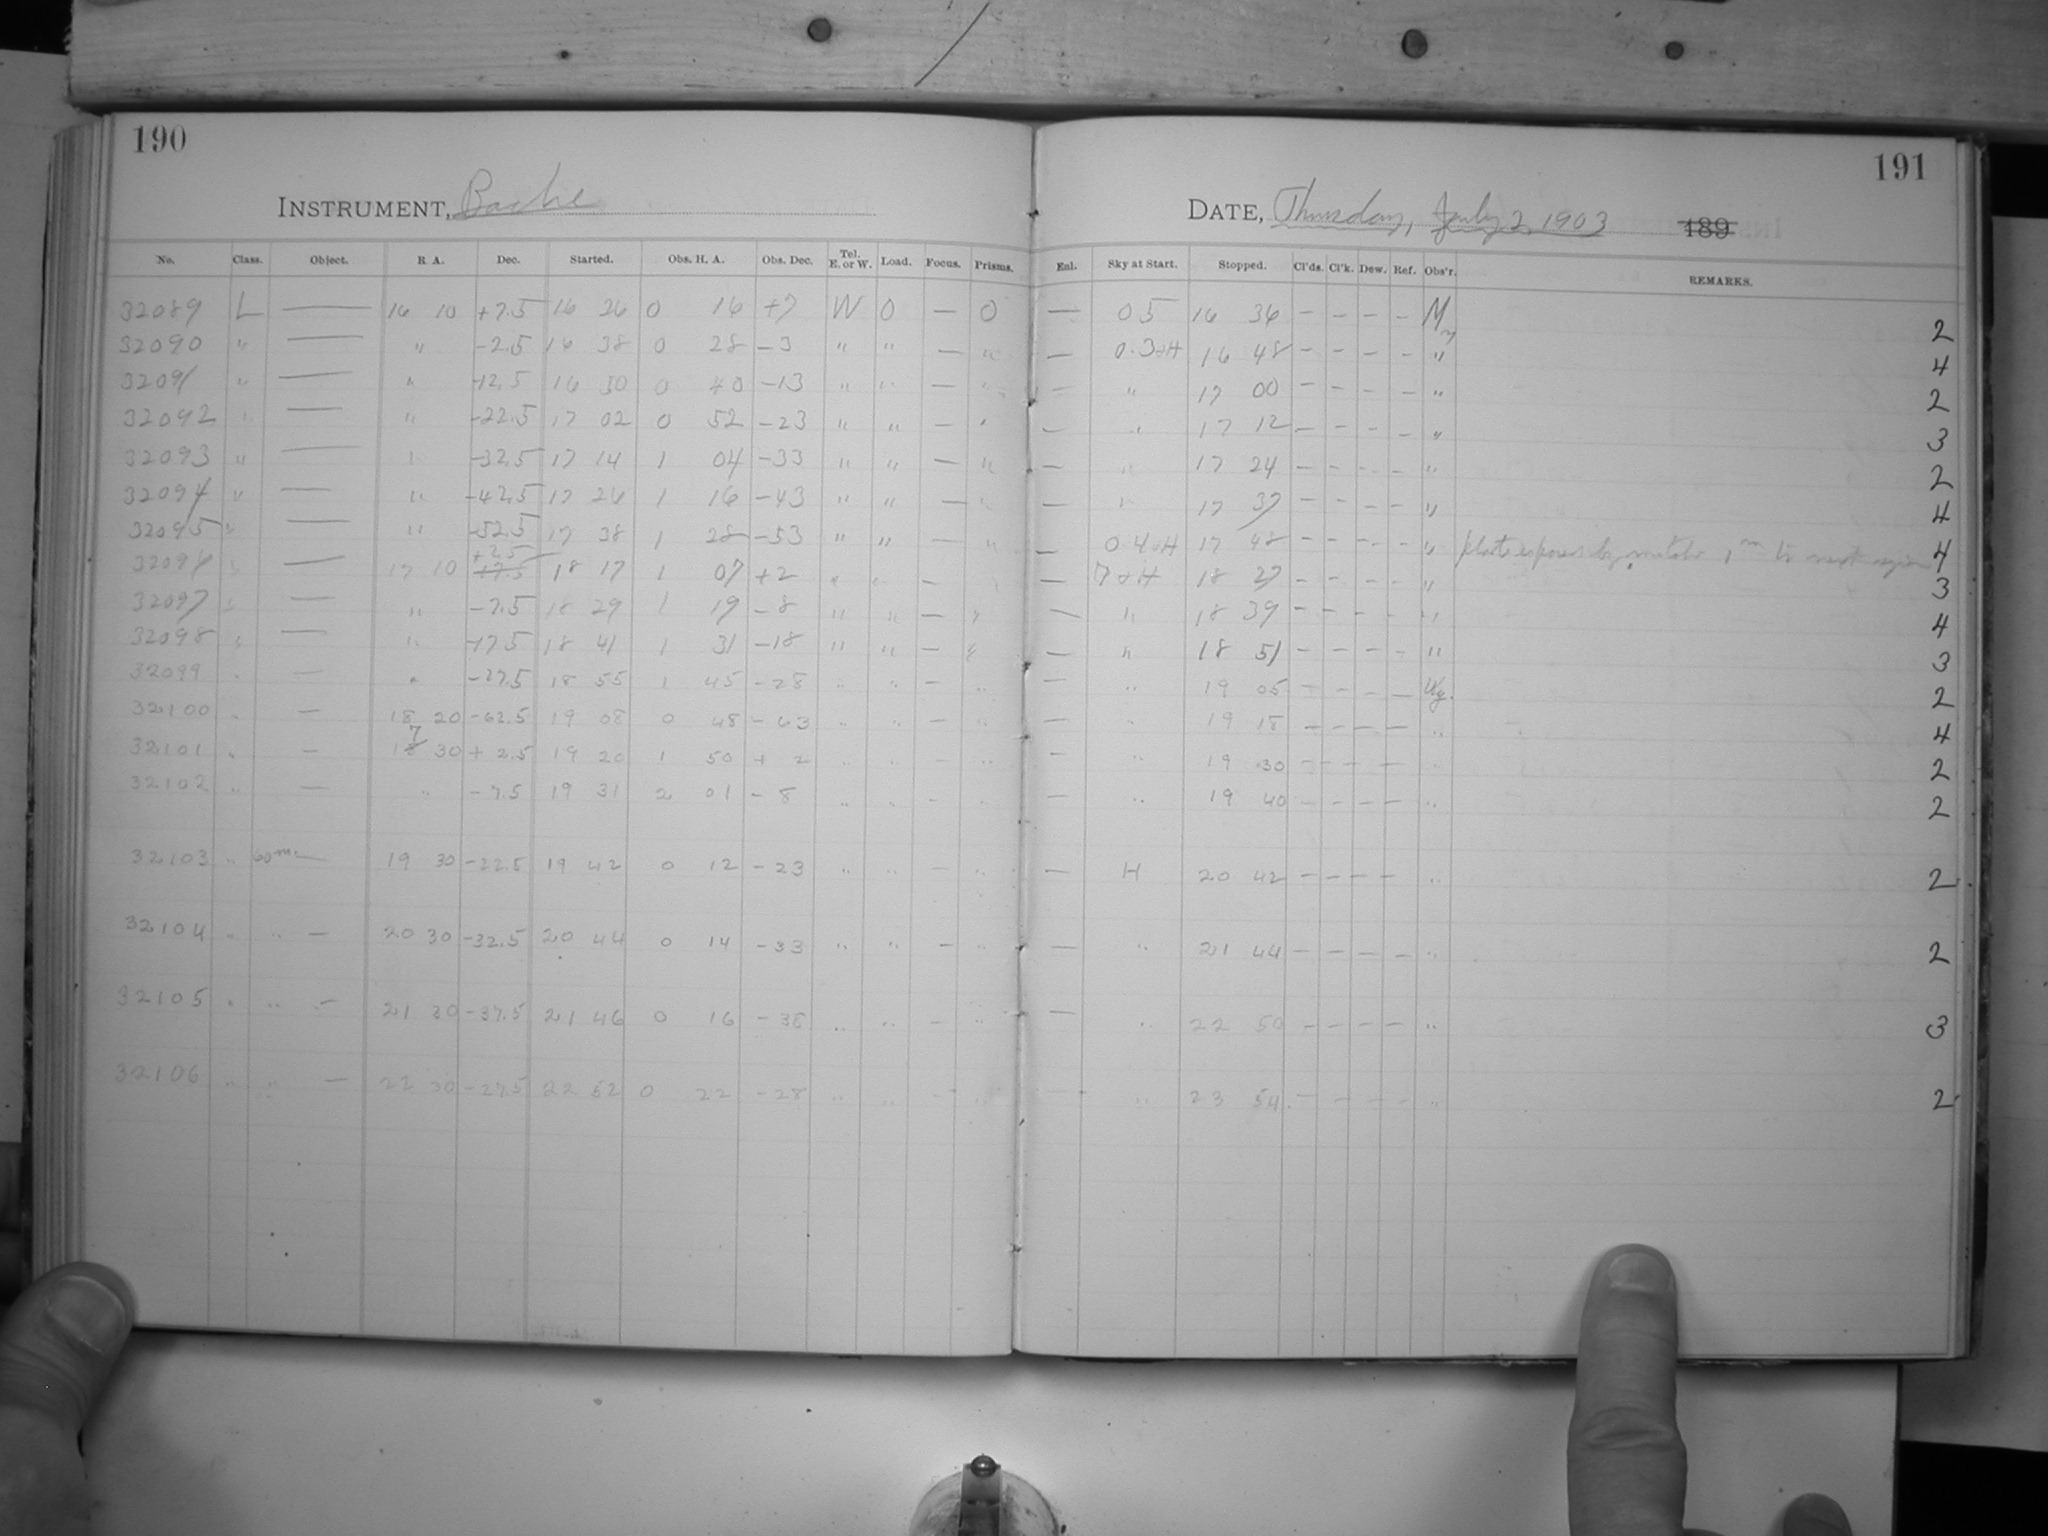 190
191
INSTRUMENT, Bache
DATE, Thursday, July 2, 1903 189
No. Class. Object. R. A. Dec. Started. Obs. H. A. Obs. Dec. Tel. E. or W. Load. Focus. Prisms. Enl. Sky at Start. Stopped. Cl'ds. Cl'k. Dew. Ref. Obs'r. REMARKS.
32089 L — 16 10 +7.5 16 26 0 16 +7 W 0 — 0 — 05 16 36 — — — — M 2
32090 " — " -2.5 16 38 0 28 -3 " " — " — 0.3+H 16 48 — — — — " 4
32091 " — " -12.5 16 50 0 40 -13 " " — " — " 17 00 — — — — " 2
32092 " — " -22.5 17 02 0 52 -23 " " — " — " 17 12 — — — — " 3
32093 " — " -32.5 17 14 1 04 -33 " " — " — " 17 24 — — — — " 2
32094 " — " -42.5 17 26 1 16 -43 " " — " — " 17 37 — — — — " 4
32095 " — " -52.5 17 38 1 28 -53 " " — " — 0.4+H 17 48 — — — — " plate exposed by mistake 1m to next region 4
32096 " — 17 10 +7.5 +2.5 18 17 1 07 +2 " " — " — 7+H 18 27 — — — — " 3
32097 " — " -7.5 18 29 1 19 -8 " " — " — " 18 39 — — — — " 4
32098 " — " -17.5 18 41 1 31 -18 " " — " — " 18 51 — — — — " 3
32099 " — " -27.5 18 55 1 45 -28 " " — " — " 19 05 — — — — Wy. 2
32100 " — 18 20 -62.5 19 08 0 48 -63 " " — " — " 19 18 — — — — " 4
32101 " — 18 7 30 + 2.5 19 20 1 50 + 2 " " — " — " 19 30 — — — — " 2
32102 " — " -7.5 19 31 2 01 -8 " " — " — " 19 40 — — — — " 2
32103 " 60m. — 19 30 -22.5 19 42 0 12 -23 " " — " — H 20 42 — — — — " 2
32104 " " — 20 30 -32.5 20 44 0 14 -33 " " — " — " 21 44 — — — — " 2
32105 " " — 21 30 -37.5 21 46 0 16 -38 " " — " — " 22 50 — — — — " 3
32106 " " — 22 30 -27.5 22 52 0 22 -28 " " — " — " 23 54 — — — — " 2